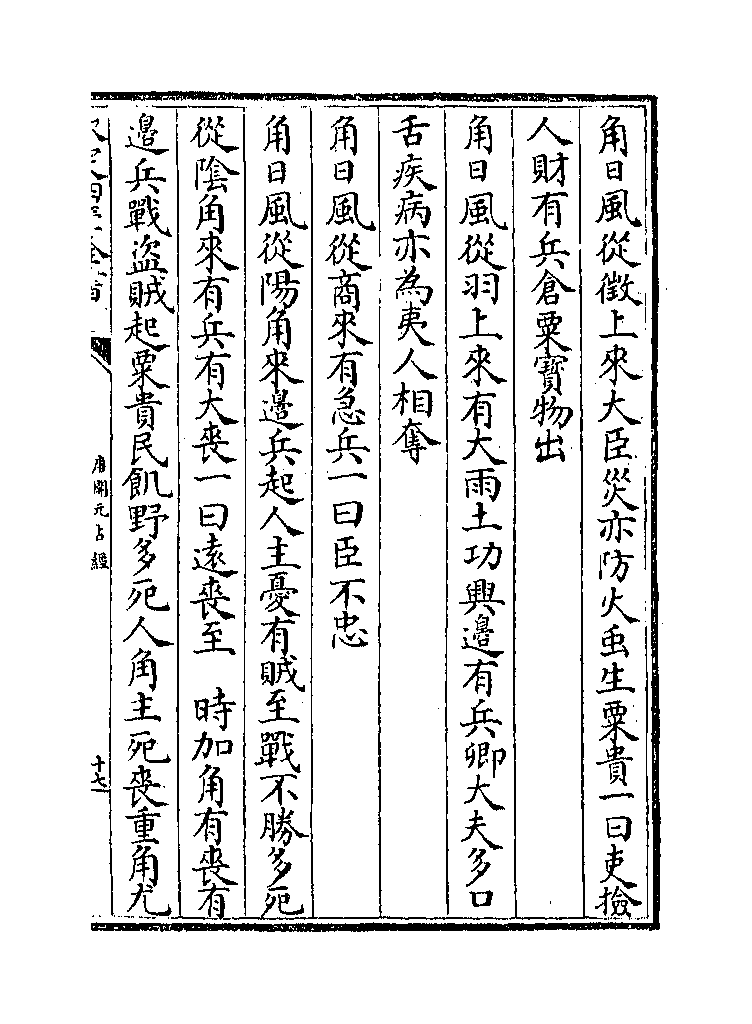 角日風從徵上來大臣災亦防火䖝生粟貴一曰吏撿
人財有兵倉粟寳物出
角日風從羽上來有大雨土功興邊有兵卿大夫多口
舌疾病亦為夷人相奪
角日風從商來有急兵一曰臣不忠
角日風從陽角來邊兵起人主憂有賊至戰不勝多死
從隂角來有兵有大喪一曰逺喪至　時加角有喪有
邊兵戰盜賊起粟貴民飢野多死人角主死喪重角尤
唐開元占經
十七